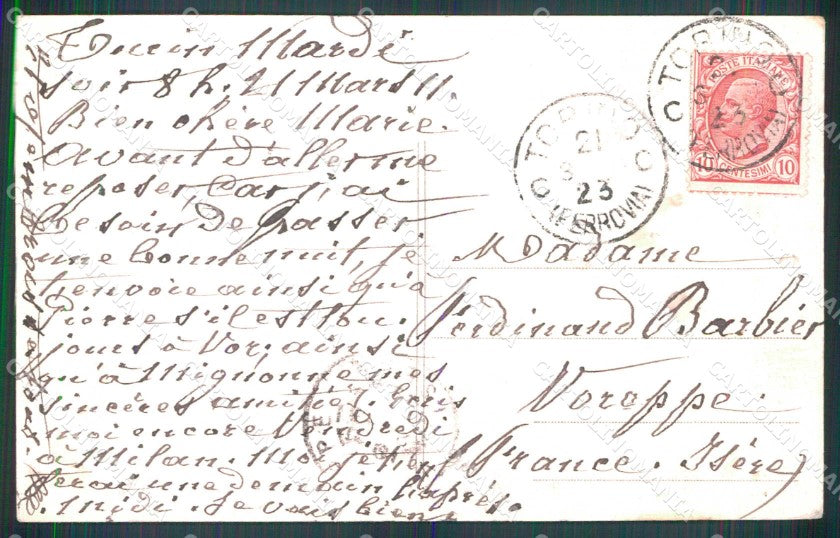 Turin Mardi
soir 8 h. 21 Mars 11.
Bien chère Marie.
Avant d'aller me
reposer, car j'ai
besoin de passer
une bonne nuit, je
t'envoie ainsi qu'a
Pierre s'il est tou.
jours à Vor; ainsi
qu'à Mignonne mes
sincères amitiés. Ecris
moi encore Vendredi
à Milan.
une demain l'après.
midi. Je vais bien et
TORINO
21
3
23
(FERROVIA)
TORINO
23
(FERROVIA)
POSTE ITALIANE
10 CENTESIMI 10
Madame
Ferdinand Barbier
Voreppe.
France. Isère)
CARTOLINOMANIA